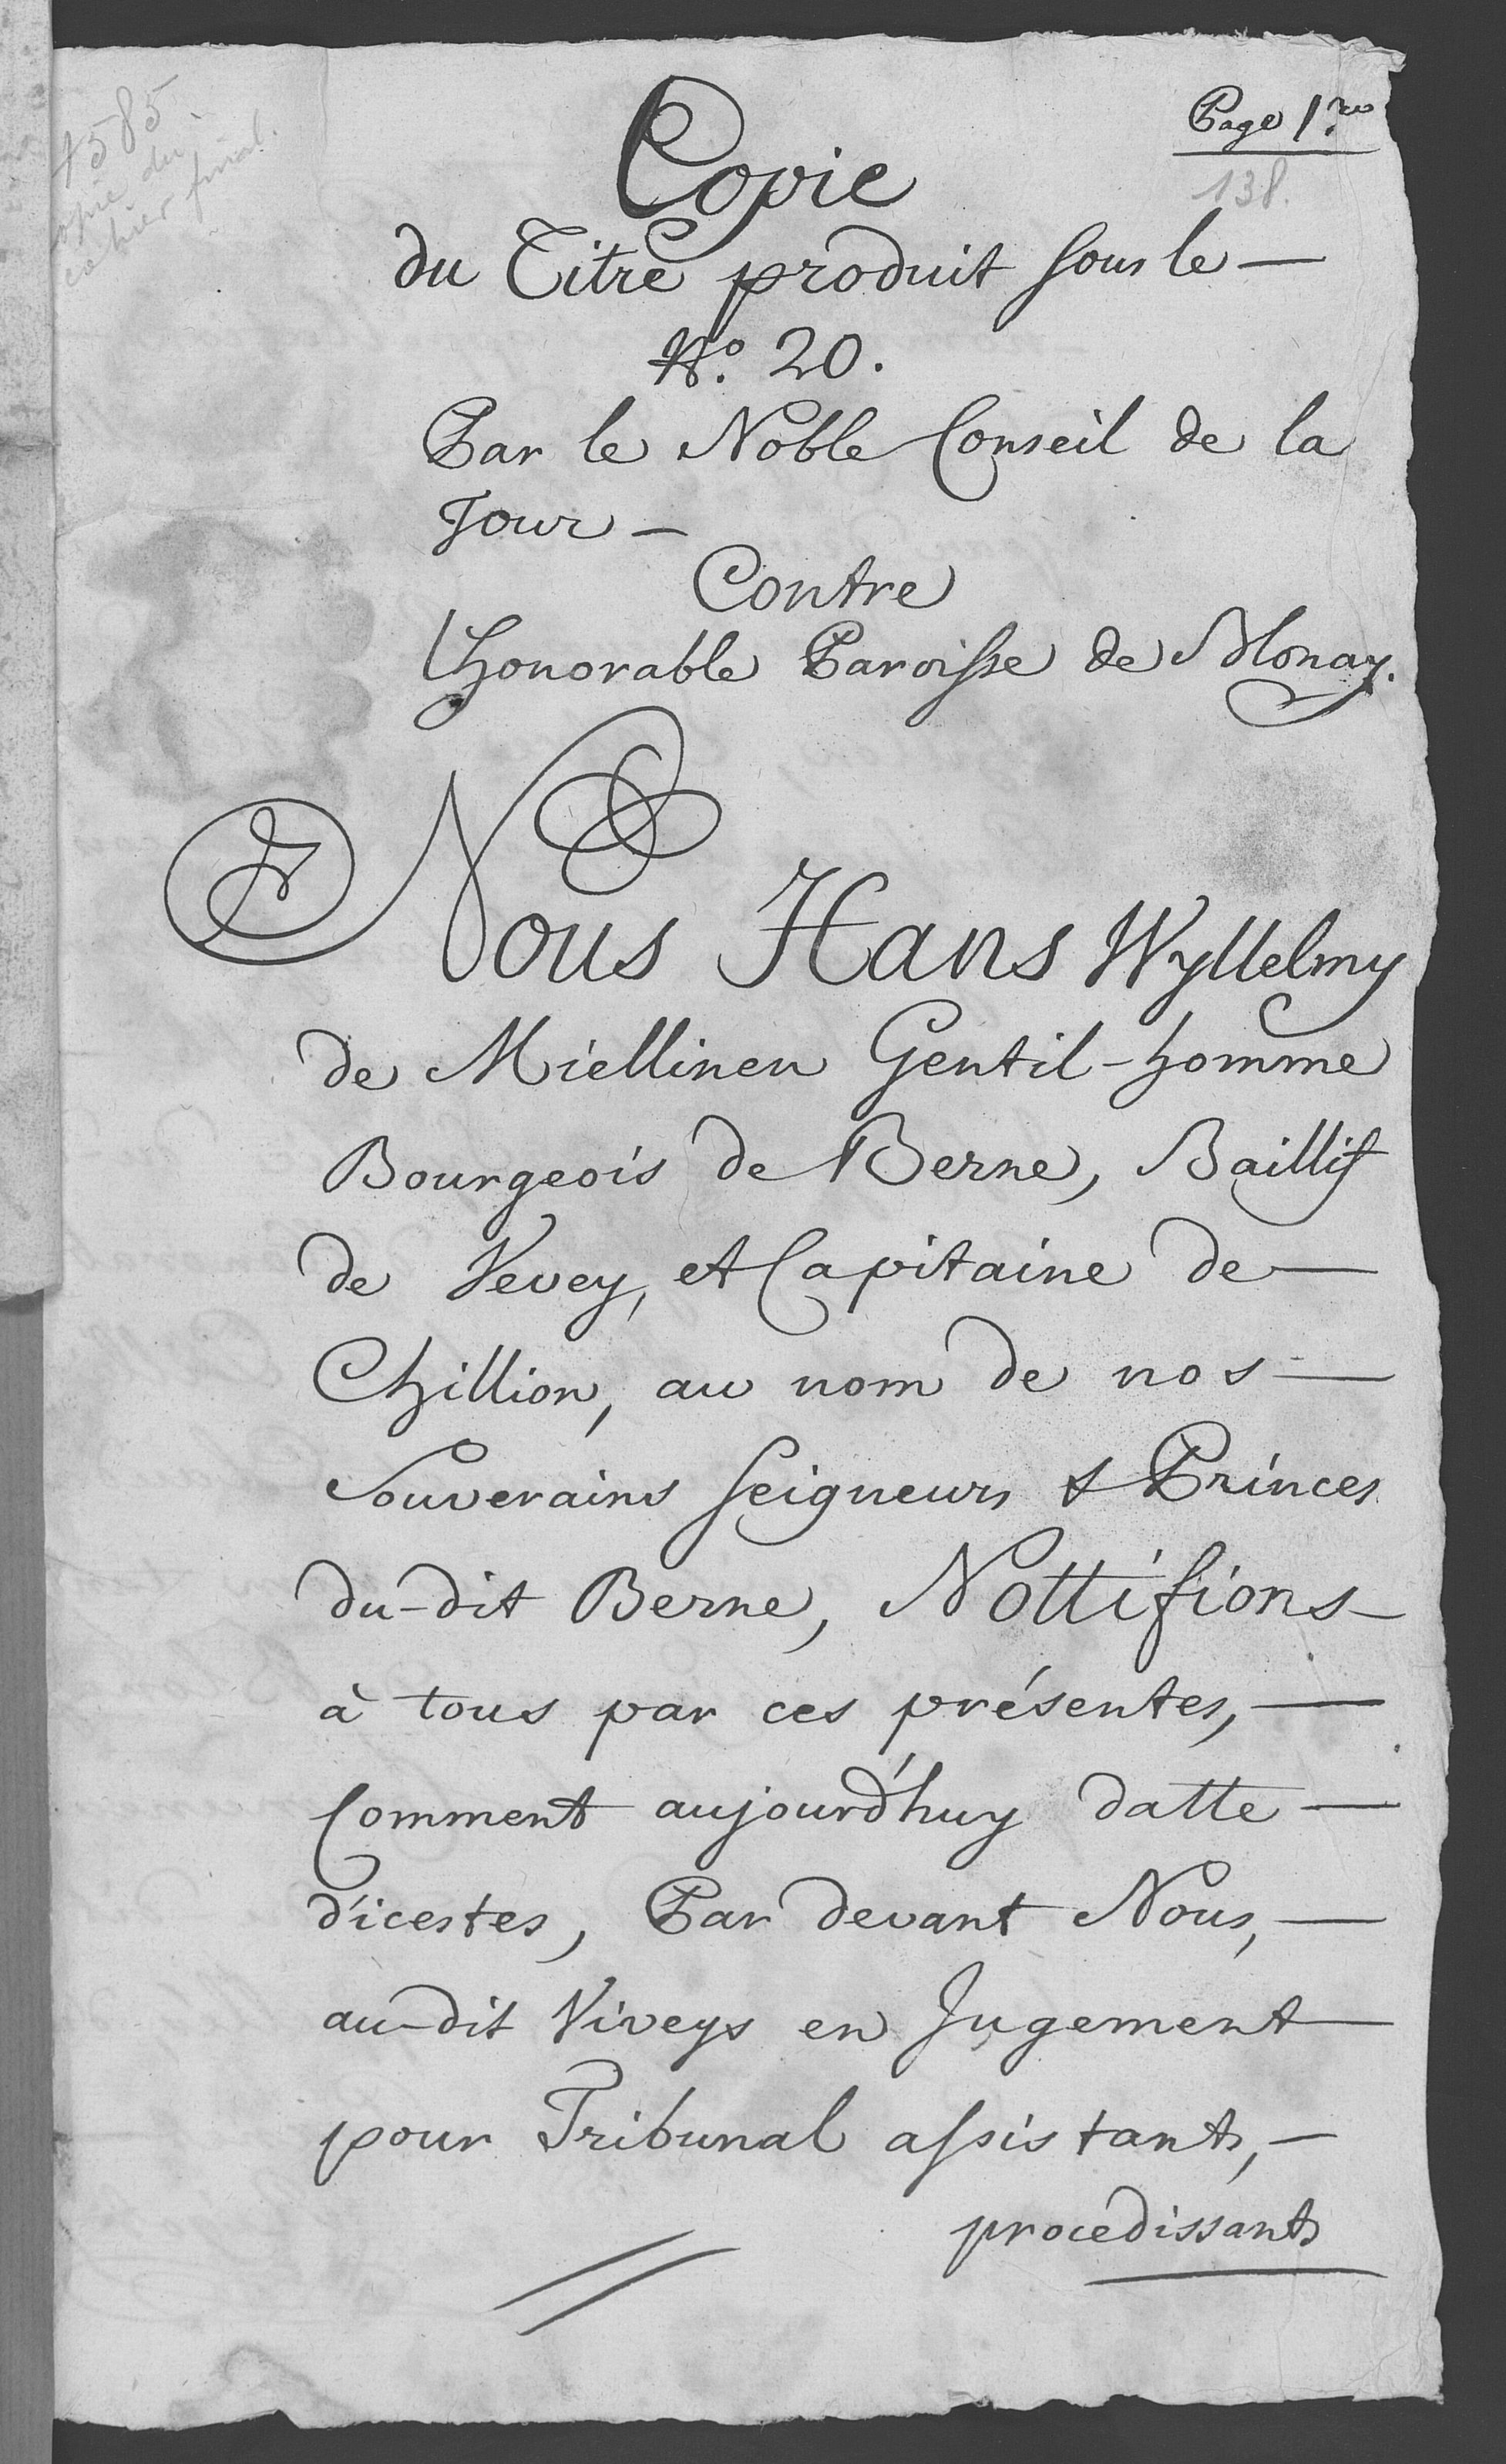 1585
copie du
cahier final.
Page 1.re
138.
Copie
du Titre produit sous le —
N.o 20.
Par le Noble Conseil de la
Tour —
Contre
L'honorable Paroisse de Blonay.
Nous Hans Wyllelmy
de Miellinen Gentil-homme
Bourgeois de Berne, Baillif
de Vevey, et Capitaine de —
Chillion, au nom de nos —
Souverains Seigneurs & Princes
du-dit Berne, Nottifions —
à tous par ces présentes, —
Comment aujourd'huy datte —
d'icestes, Par devant Nous, —
au-dit Viveys en Jugement —
pour Tribunal assistants, —
procedissants